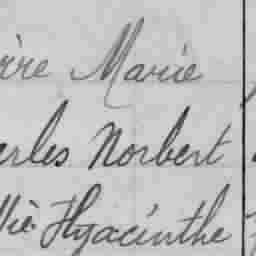 ierre Marie
arles Norbert
llie Hyacinthe